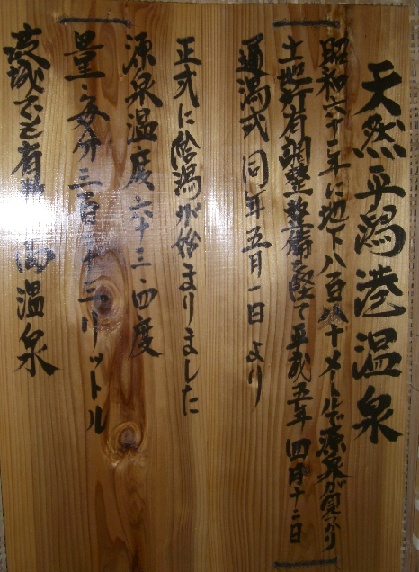 天然平潟港温泉
昭和六十一年に地下八百八十メートルで源泉が見つかり
土地所有調整整備を経て平成五年 四月十二日
通湯式 同年五月一日より
正式に給湯が始まりました
源泉温度 六十三・四度
量・毎分 三百 十二リットル
茨城 有 の温泉